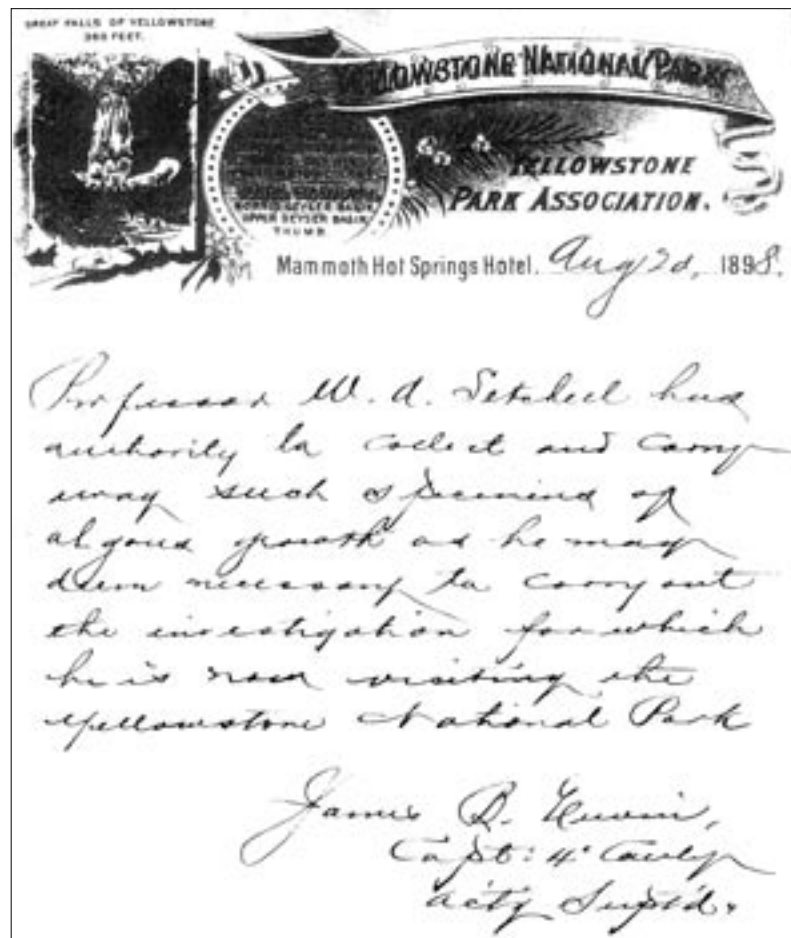 GREAT FALLS OF YELLOWSTONE
360 FEET.
YELLOWSTONE NATIONAL PARK
NORRIS GEYSER BASIN,
UPPER GEYSER BASIN,
THUMB.
YELLOWSTONE
PARK ASSOCIATION.
Mammoth Hot Springs Hotel. Aug 2d, 1898.
Professor W. A. Setchell has
authority to collect and carry
away such specimens of
algous growth as he may
deem necessary to carry out
the investigation for which
he is now visiting the
Yellowstone National Park
James B. Erwin,
Capt: 4" Cavly
Actg Supt'd.